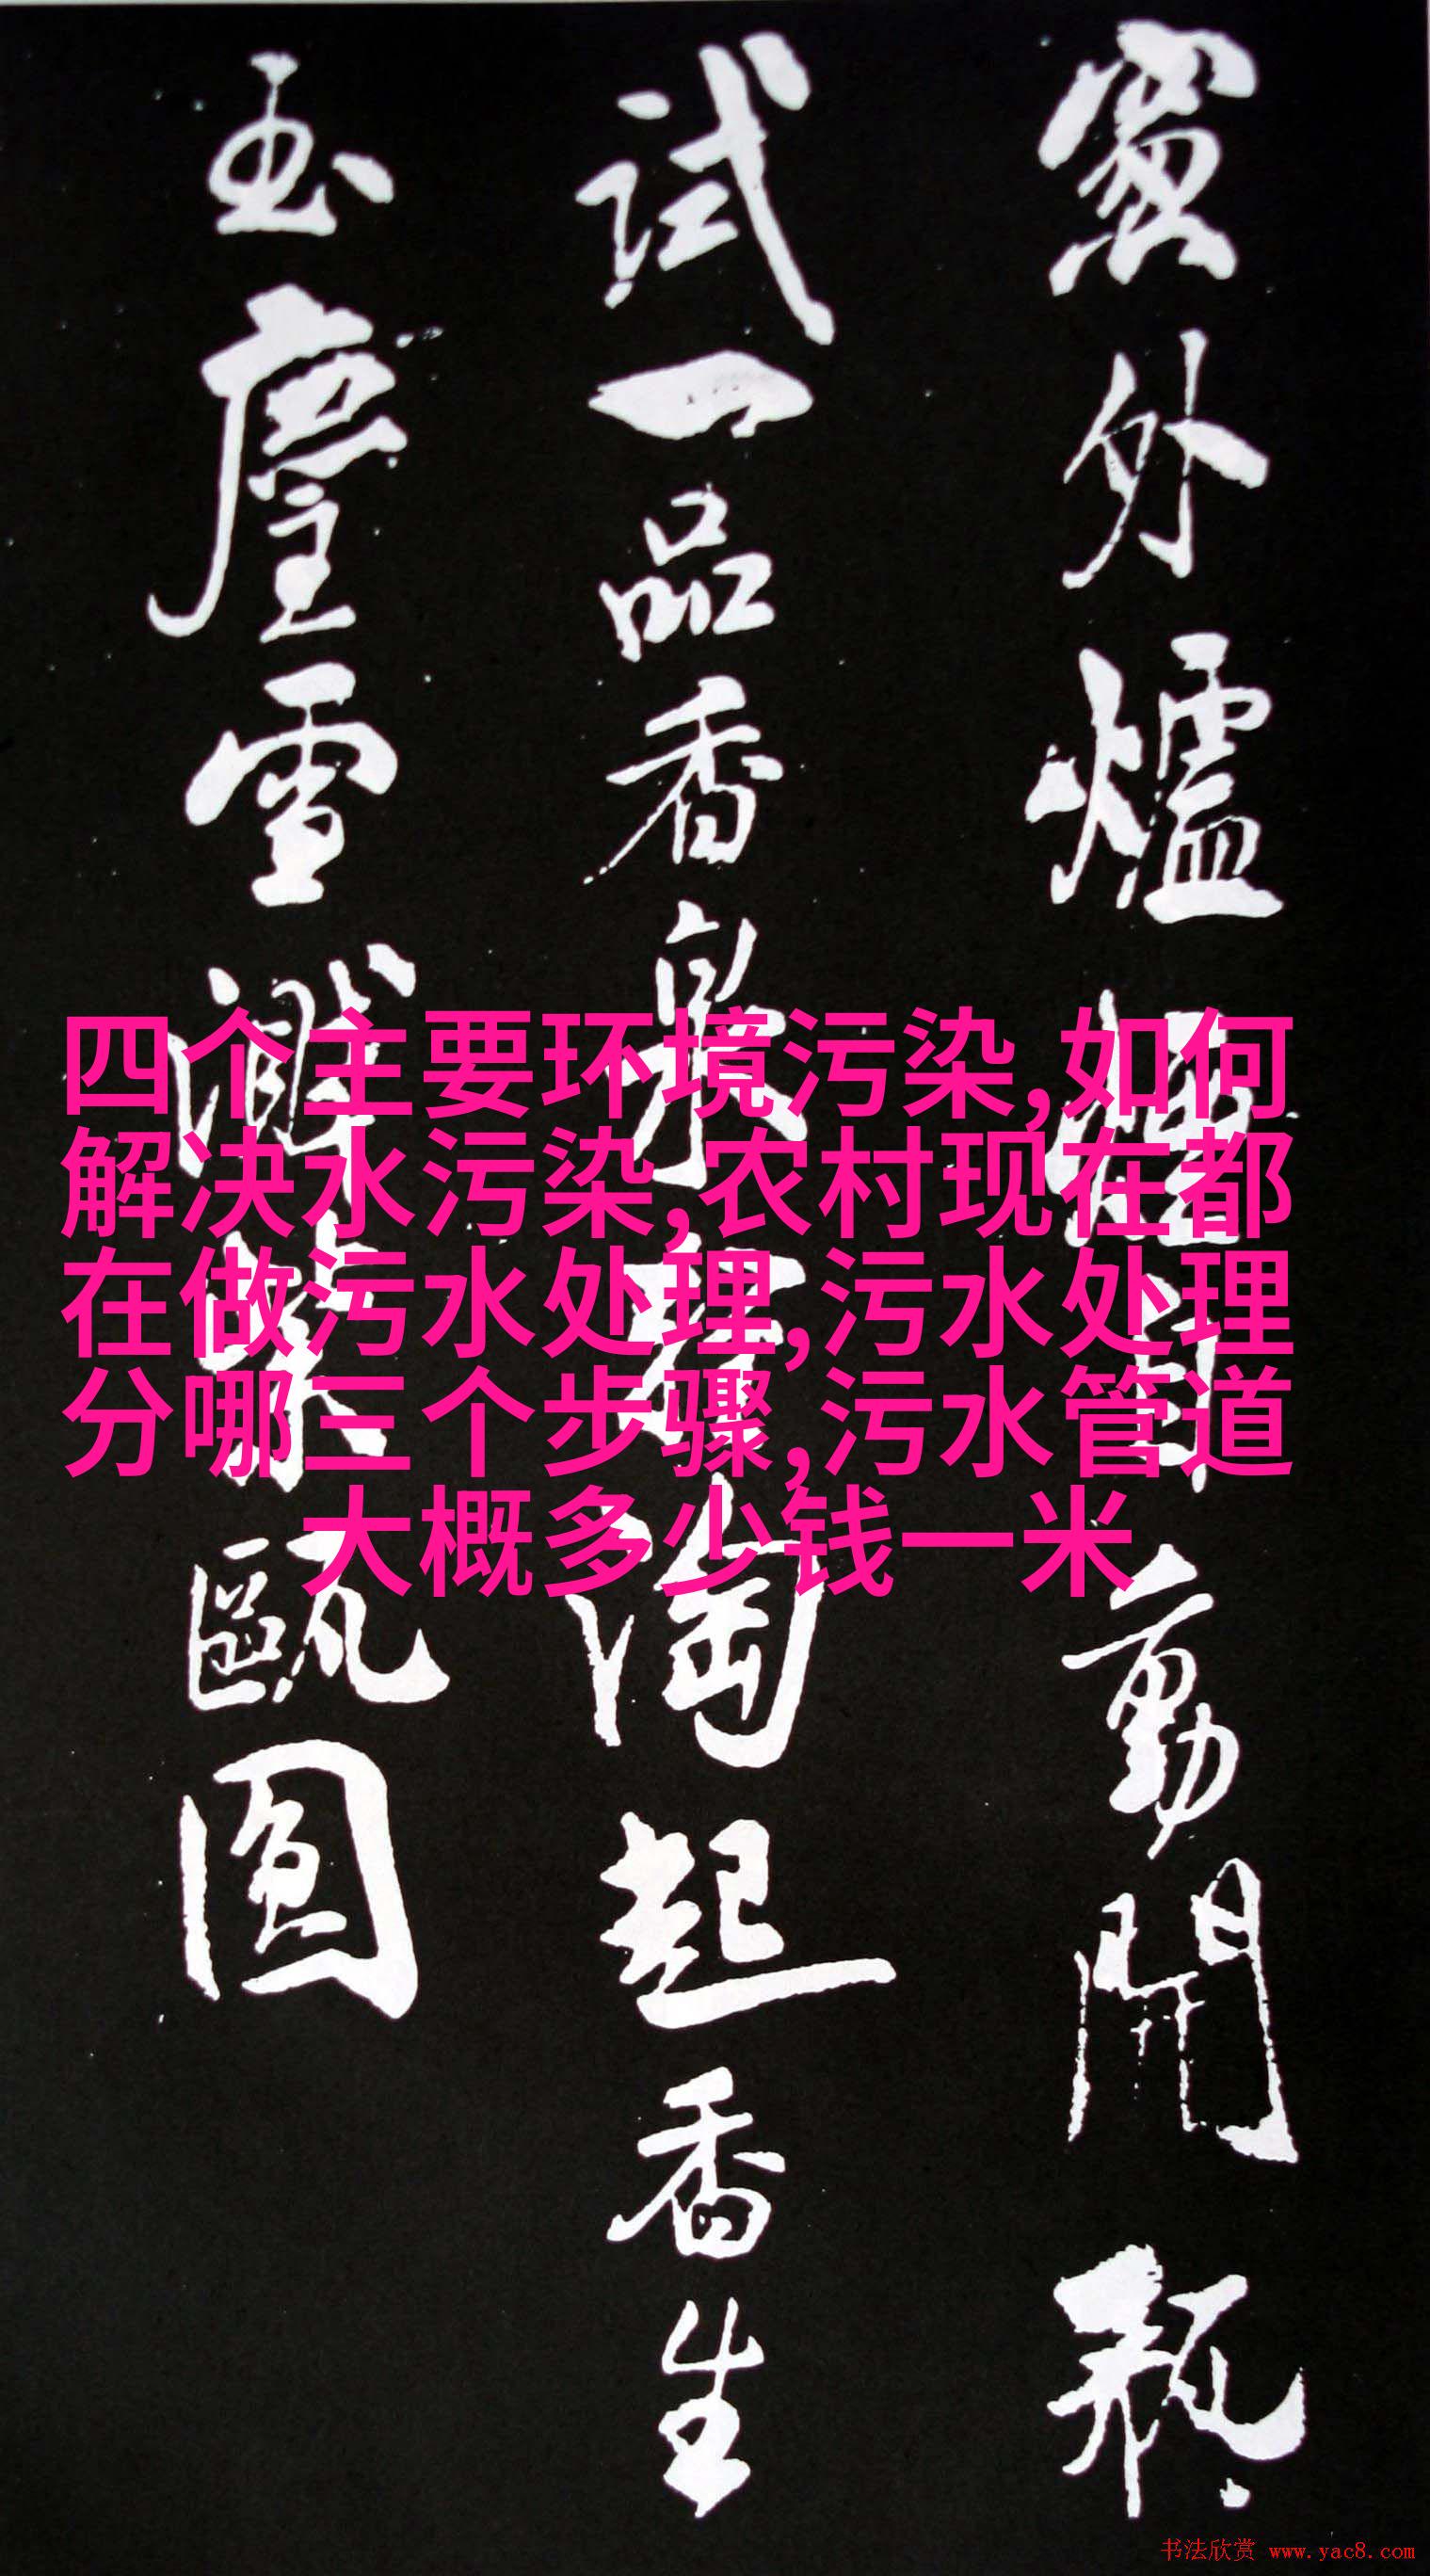 窻外爐煙自動開瓶
試一品香泉輕淘起香生
玉塵雪濺紫甌圓
四个主要环境污染,如何
解决水污染,农村现在都
在做污水处理,污水处理
分哪三个步骤,污水管道
大概多少钱一米
书法欣赏 www.yac8.com